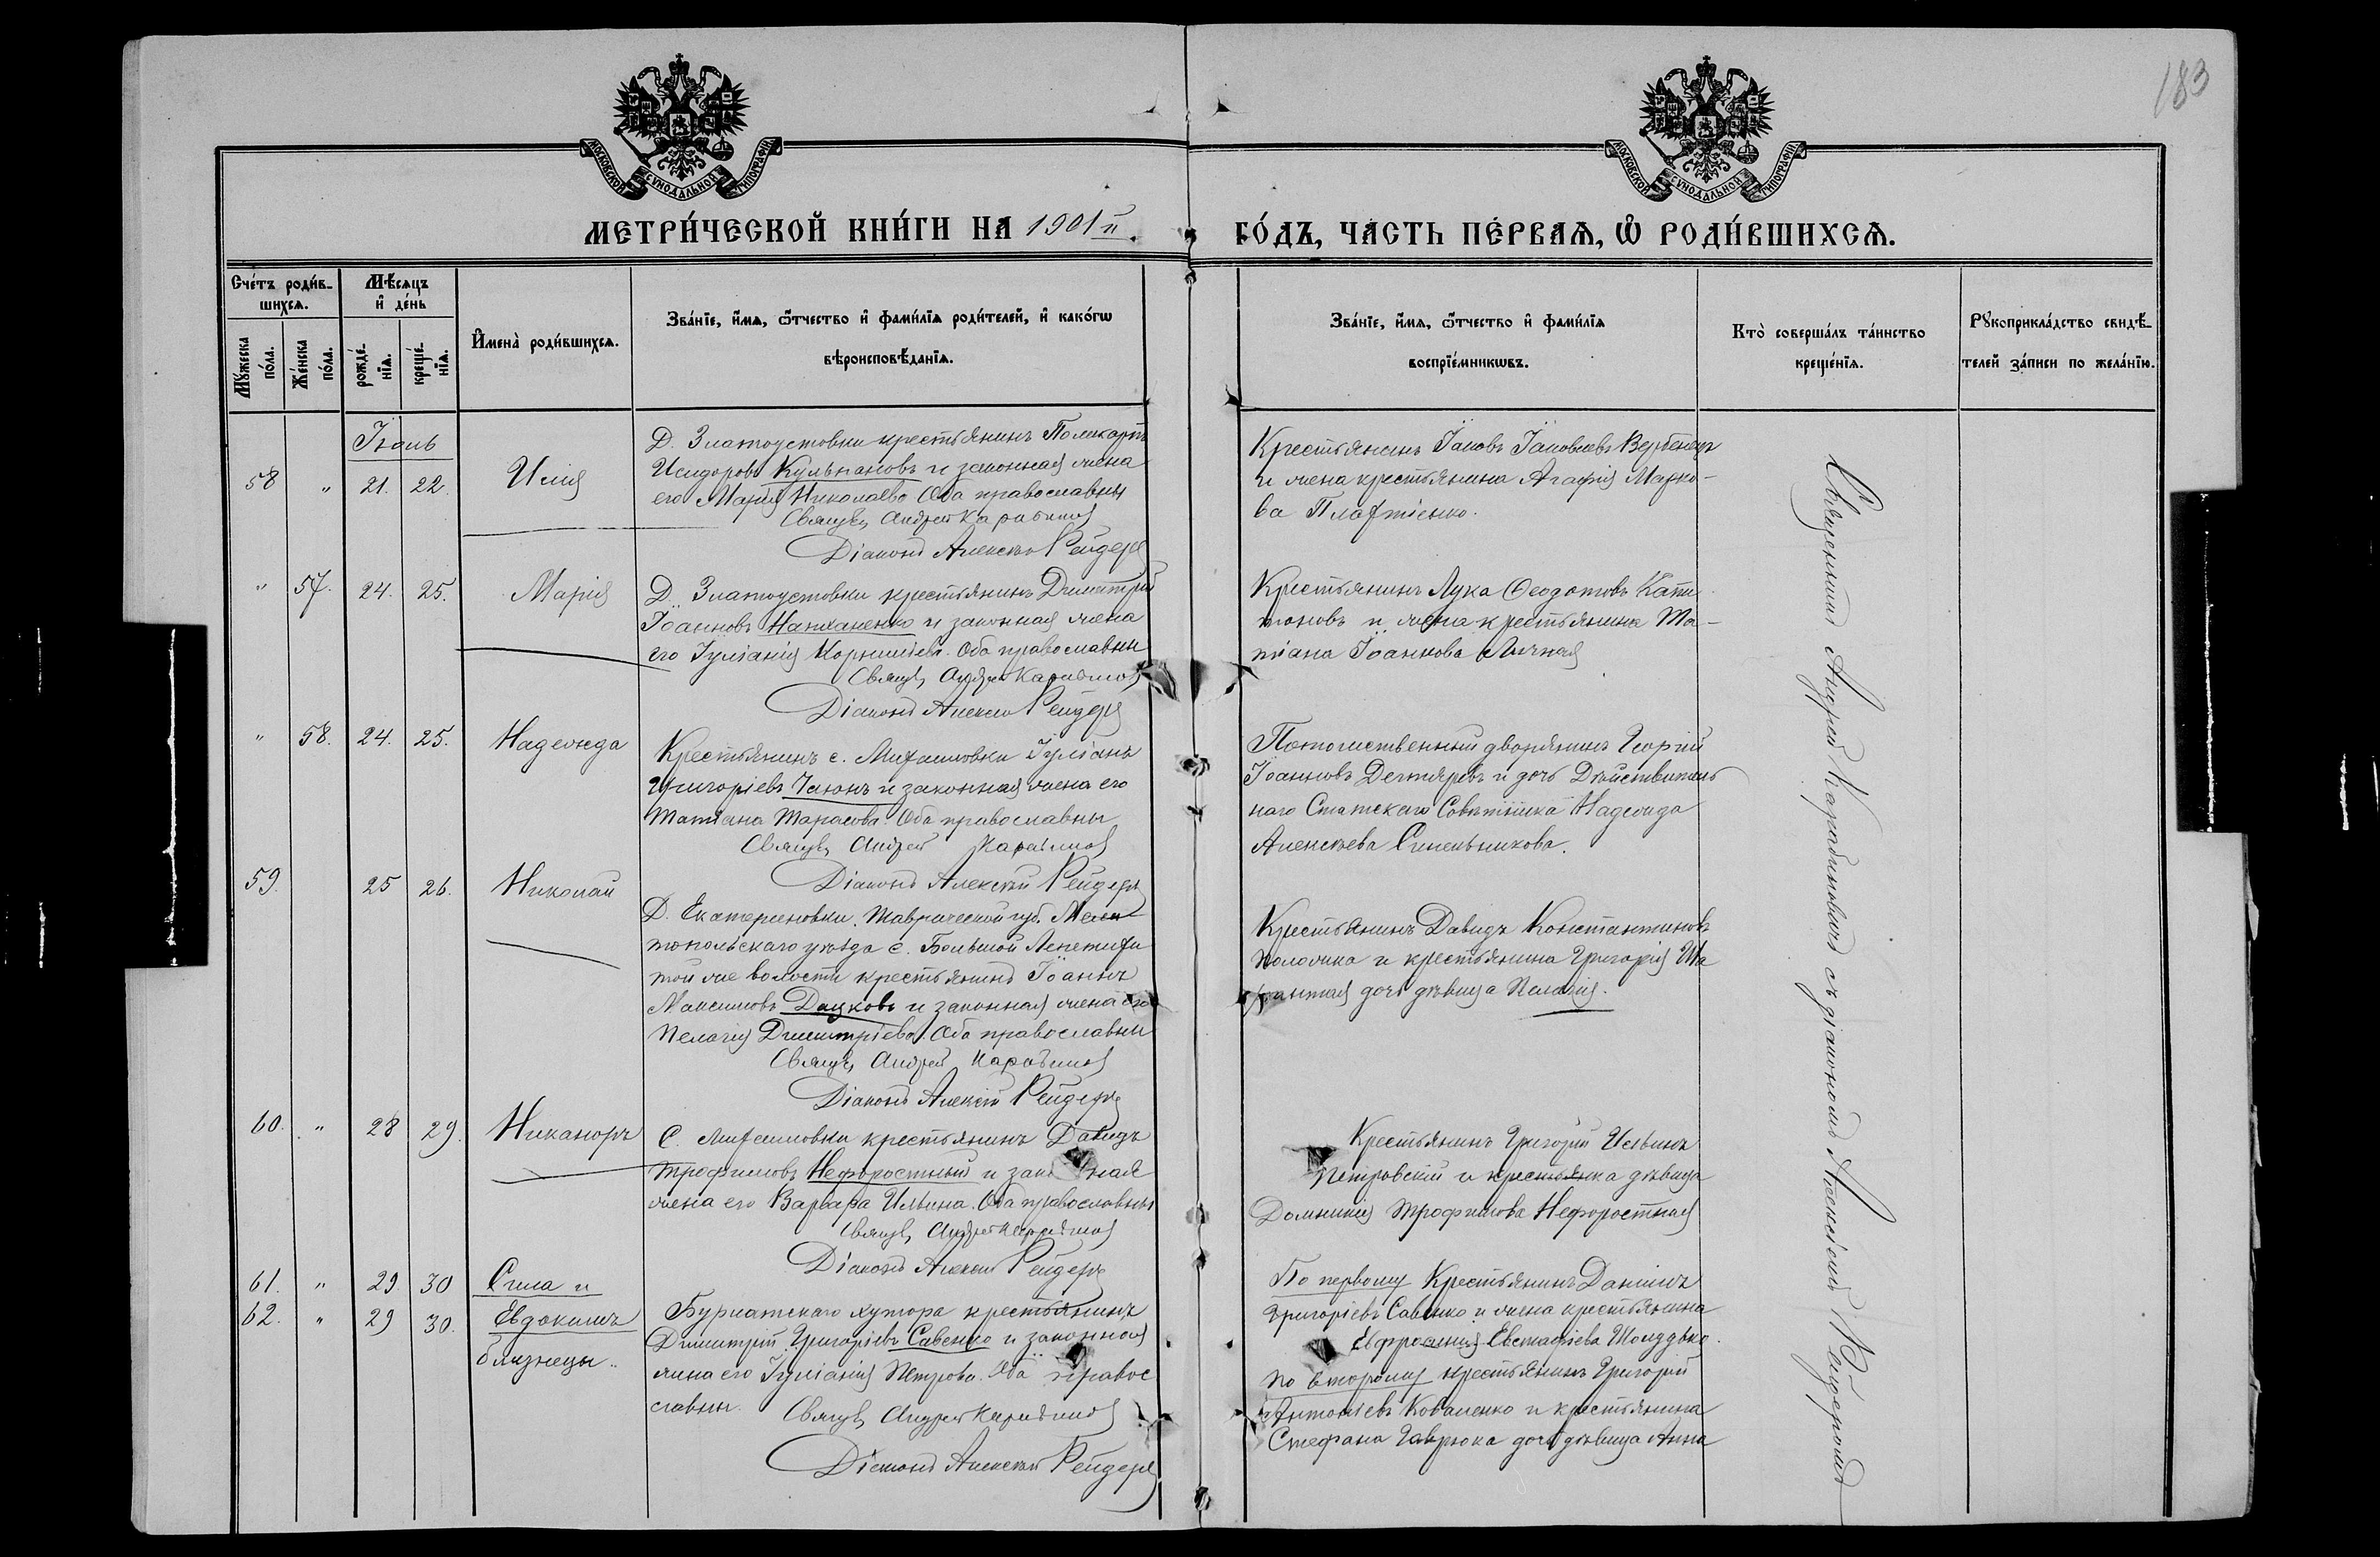 183
МОСКОВСКОЙ СѴНОДАЛЬНОЙ ТИПОГРАФІИ
МОСКОВСКОЙ СѴНОДАЛЬНОЙ ТИПОГРАФІИ
МЕТРИ́ЧЕСКОЙ КНИ́ГИ НА 1901й. ГО́ДЪ, ЧА́СТЬ ПЕ́РВАѦ, Ѡ҆ РОДИ́ВШИХСѦ.
Сче́тъ роди́в-
шихсѧ.
Мꙋ́жеска по́ла.
Же́нска по́ла.
Мѣ́сѧцъ
и҆ де́нь
рожде́-
нїѧ.
креще́-
нїѧ.
И҆мена̀ роди́вшихсѧ.
Зва́нїе, и҆́мѧ, ѻ҆́тчество и҆ фами́лїѧ роди́телей, и҆ како́гѡ
вѣроисповѣ́данїѧ.
Зва́нїе, и҆́мѧ, ѻ҆́тчество и҆ фами́лїѧ
воспрїе́мникѡвъ.
Кто̀ соверша́лъ та́инство
креще́нїѧ.
Рꙋкоприкла́дство свидѣ́-
телей за́писи по жела́нїю.
Іюль
58 " 21. 22. Илія
Д. Златоустовки крестьянинъ Поликарпъ
Исидоровъ Кульпановъ и законная жена
его Марія Николаева Оба православны
Свящ. Андрей Карабиновичъ
Діаконъ Алексѣй Рейдеръ
Крестьянинъ Іаковъ Іаковлевъ Вербенецъ
и жена крестьянина Агафія Марко-
ва
" 57. 24. 25. Марія
Д. Златоустовки крестьянинъ Димитрій
Іоанновъ Нанханенко и законная жена
его Іуліанія Корниліева. Оба православны
Свящ. Андрей Карабиновичъ
Діаконъ Алексѣй Рейдеръ
Крестьянинъ Лука Ѳеодотовъ Капи
тоновъ и жена крестьянина Та-
тіана Іоаннова
" 58. 24. 25. Надежда
Крестьянинъ с. Михайловки Іуліанъ
Григоріевъ Чаюнъ и законная жена его
Татіана Тарасова. Оба православны
Свящ. Андрей Карабиновичъ
Діаконъ Алексѣй Рейдеръ
Потомственный дворянинъ Георгій
Іоанновъ Дегтяревъ и дочь Дѣйствитель
наго Статскаго Совѣтника Надежда
Алексѣева Синельникова.
59. 25 26. Николай
Д. Екатериновки, Таврической губ. Мели-
топольскаго уѣзда с. Большой Лепетихи
той же волости крестьянинъ Іоаннъ
Максимовъ Дацковъ и законная жена его
Пелагія Димитріева. Оба православны
Свящ. Андрей Карабиновичъ
Діаконъ Алексѣй Рейдеръ
Крестьянинъ Давидъ Константиновъ
и крестьянина Григорія
дочь дѣвица Пелагія.
60. " 28 29. Никаноръ
С. Михайловки крестьянинъ Давидъ
Трофимовъ Нефоростный и законная
жена его Варвара Ильина. Оба православны
Свящ. Андрей Карабиновичъ
Діаконъ Алексѣй Рейдеръ
Крестьянинъ Григорій Ильинъ
Петровскій и крестьянка дѣвица
Домникія Трофимова Нефоростная
61. " 29. 30 Сила и
62. " 29 30. Евдокимъ
близнецы.
Бурматскаго хутора крестьянинъ
Димитрій Григоріевъ Савенко и законная
жена его Іуліанія Петрова. Оба правос
славны.
Свящ. Андрей Карабиновичъ
Діаконъ Алексѣй Рейдеръ
По первому Крестьянинъ Даніилъ
Григоріевъ Савенко и жена крестьянина
Евфросинія Евстафіева Шолудько.
По второму крестьянинъ Григорій
Антоніевъ Коваленко и крестьянина
Стефана Гаврюка дочь дѣвица Анна
Священникъ Андрей Карабиновичъ съ діакономъ Алексіемъ Рейдеромъ